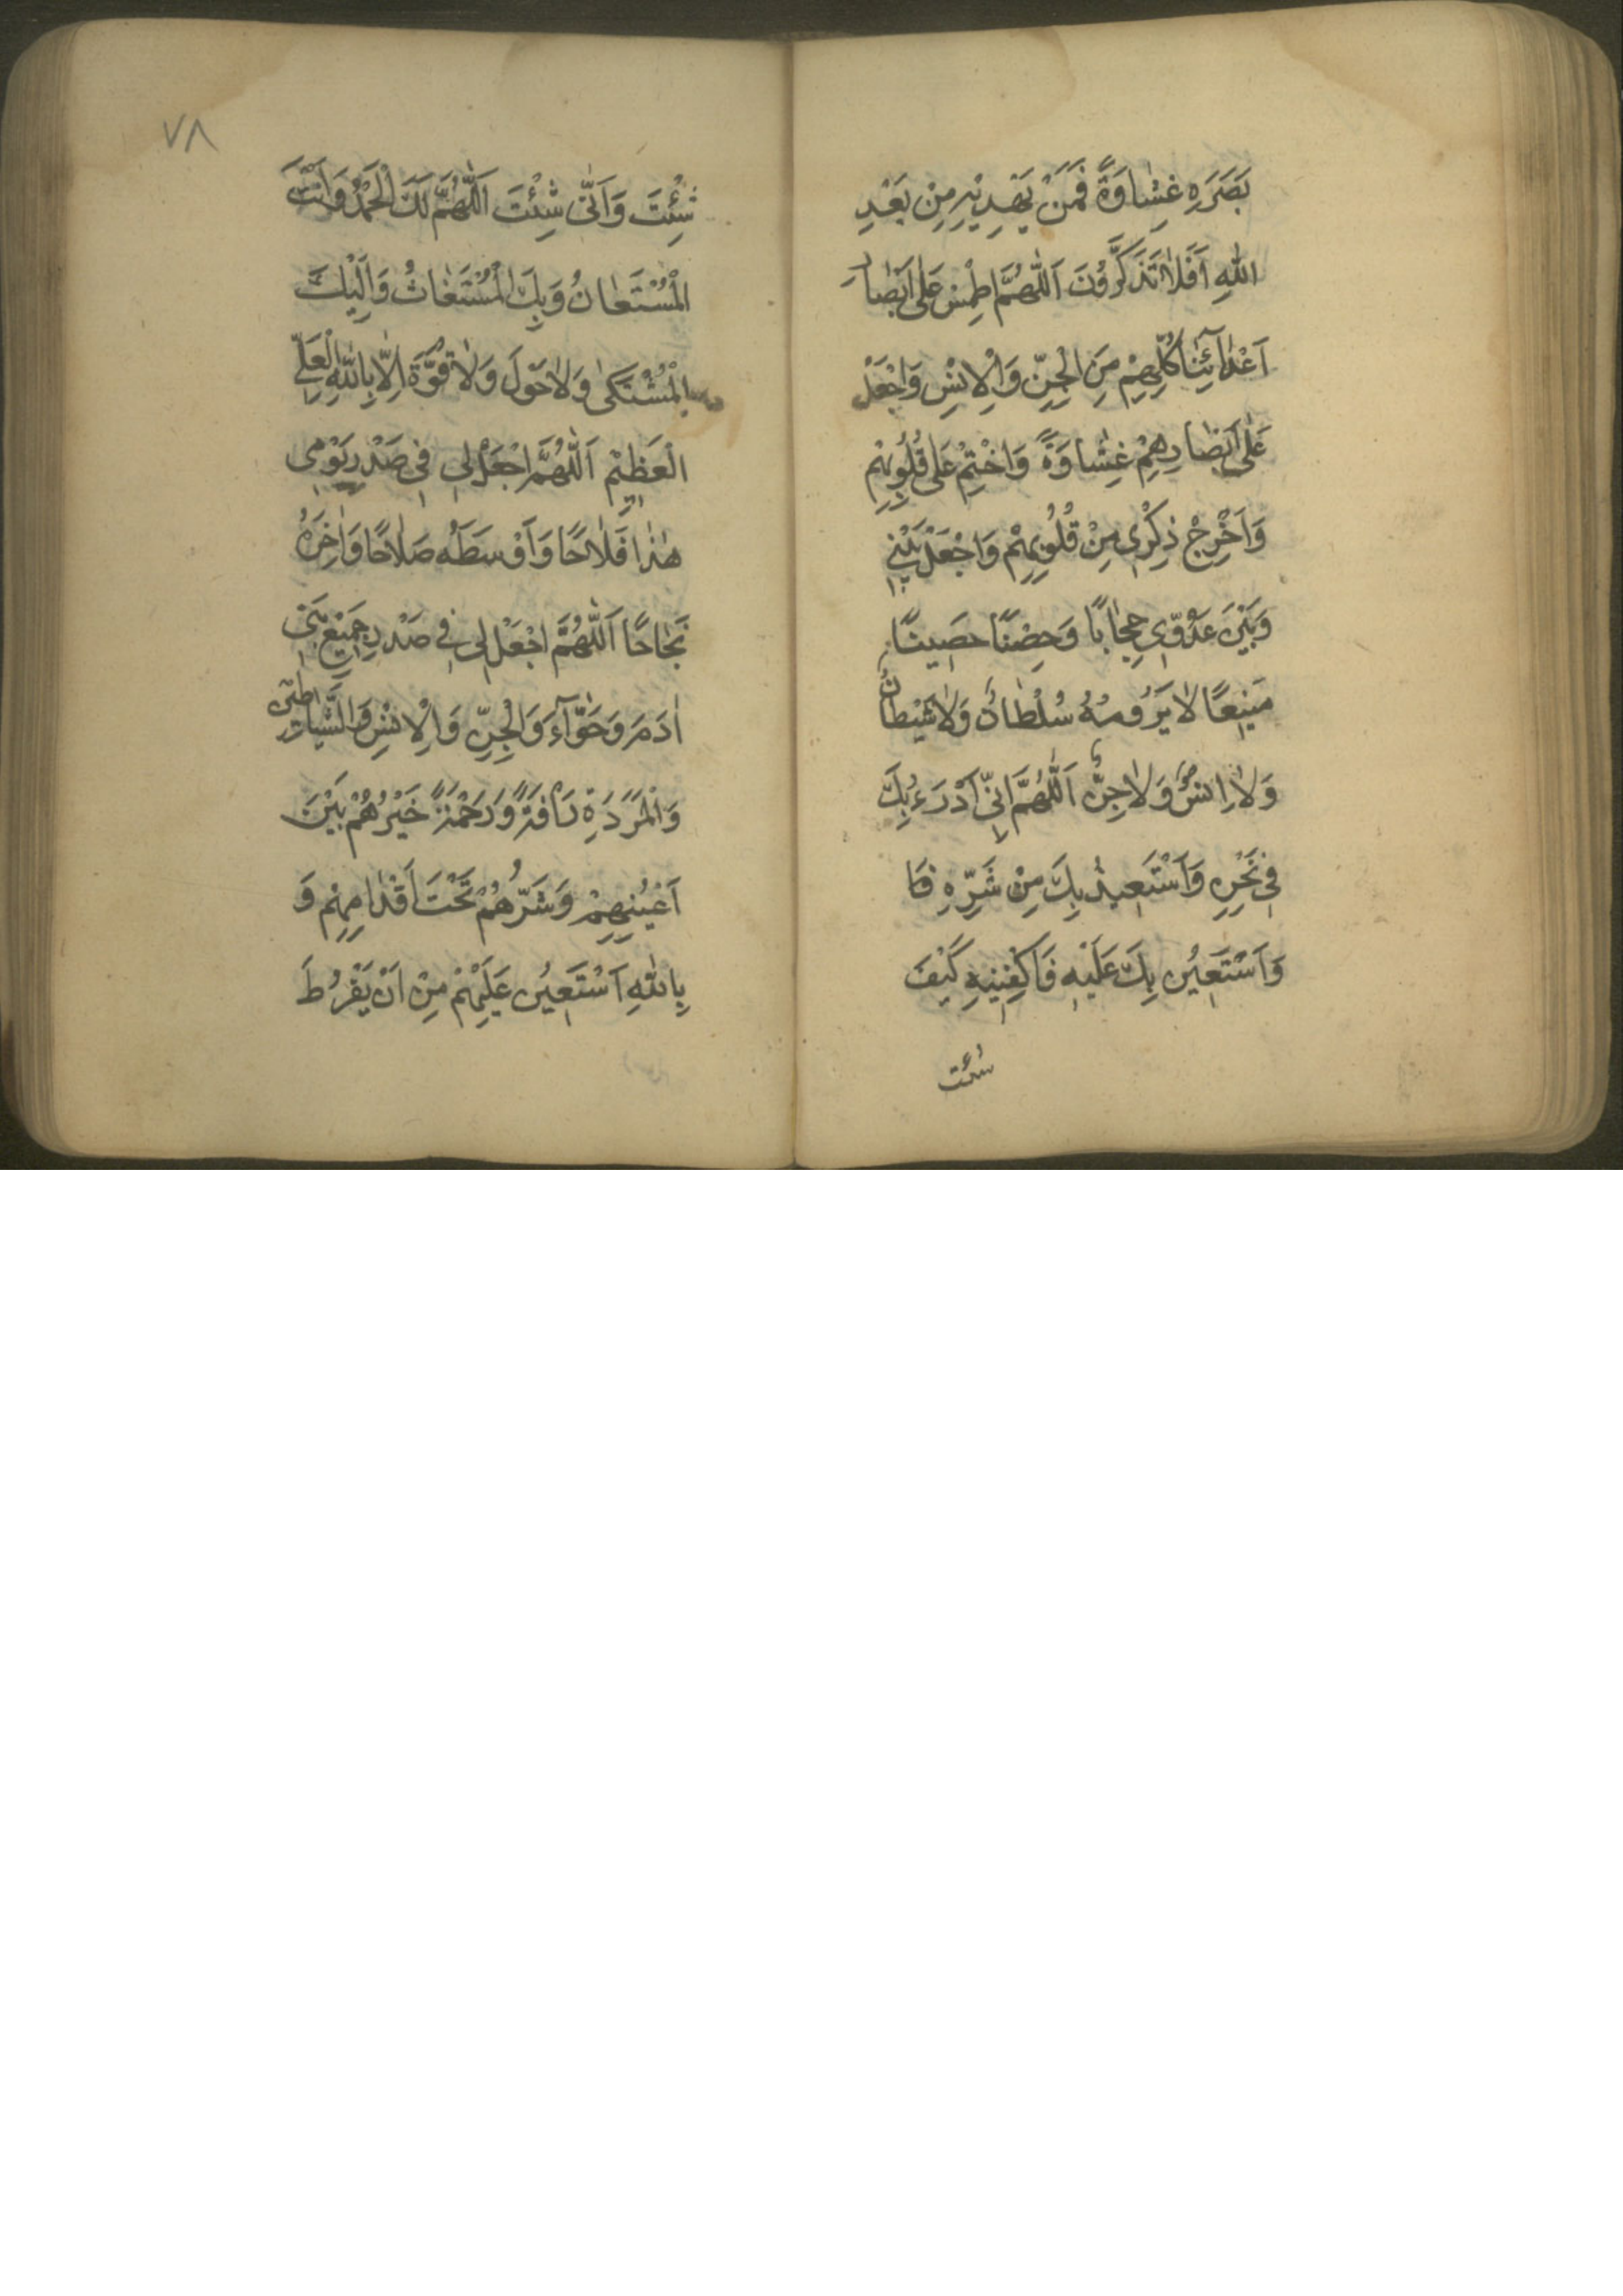 بَصَرِهِ غِشٰاوَةً فَمَنْ يَهْدِيْهِ مِنْ بَعْدِ
اللّٰهِ اَفَلاٰ تَذَكَّرُوْنَ اَللّٰهُمَّ اطْمِسْ عَلٰى اَبْصٰارِ
اَعْدٰآئِنٰا كُلِّهِمْ مِنَ الْجِنِّ وَالْاِنْسِ وَاجْعَلْ
عَلٰى اَبْصٰارِهِمْ غِشٰاوَةً وَاخْتِمْ عَلٰى قُلُوبِهِمْ
وَاَخْرِجْ ذِكْرٖى مِنْ قُلُوبِهِمْ وَاجْعَلْ بَيْنٖى
وَبَيْنَ عَدُوّٖى حِجٰابًا وَحِصْنًا حصَٖينًا
مَنٖيعًا لاٰ يَرُومُهُ سُلْطٰانٌ وَلاٰ شَيْطٰانٌ
وَلاٰ اِنْسٌ وَلاٰ جِنٌّ اَللّٰهُمَّ اِنّٖى اَدْرَءُ بِكَ
فٖى نَحْرِهِ وَاَسْتَعٖيذُ بِكَ مِنْ شَرِّهِ فَا
وَاَسْتَعٖينُ بِكَ عَلَيْهِ فَاكْفِنٖيهِ كَيْفَ
شئت
٧٨
شِئْتَ وَاَنّٰى شِئْتَ اَللّٰهُمَّ لَكَ الْحَمْدُ وَاَنْتَ
الْمُسْتَعٰانُ وَبِكَ الْمُسْتَغٰاثُ وَاِلَيْكَ
الْمُشْتَكٰى وَلاٰ حَوْلَ وَلاٰ قُوَّةَ اِلاّٰ بِاللّٰهِ الْعَلِىِّ
الْعَظٖيمِ اَللّٰهُمَّ اجْعَلْ لٖى فٖى صَدْرِ يَوْمٖى
هٰذٰا فَلاٰحًا وَاَوْسَطَهُ صَلاٰحًا وَاٰخِرَهُ
نَجٰاحًا اَللّٰهُمَّ اجْعَلْ لٖى فٖى صَدْرِ جَمٖيعِ بَنٖى
اٰدَمَ وَحَوّٰآءَ وَالْجِنِّ وَالْاِنْسِ وَالشَّيٰاطٖينِ
وَالْمَرَدَةِ رَاْفَةً وَرَحْمَةً خَيْرُهُمْ بَيْنَ
اَعْيُنِهِمْ وَشَرُّهُمْ تَحْتَ اَقْدٰامِهِمْ وَ
بِاللّٰهِ اَسْتَعٖينُ عَلَيْهِمْ مِنْ اَنْ يَفْرُطَ